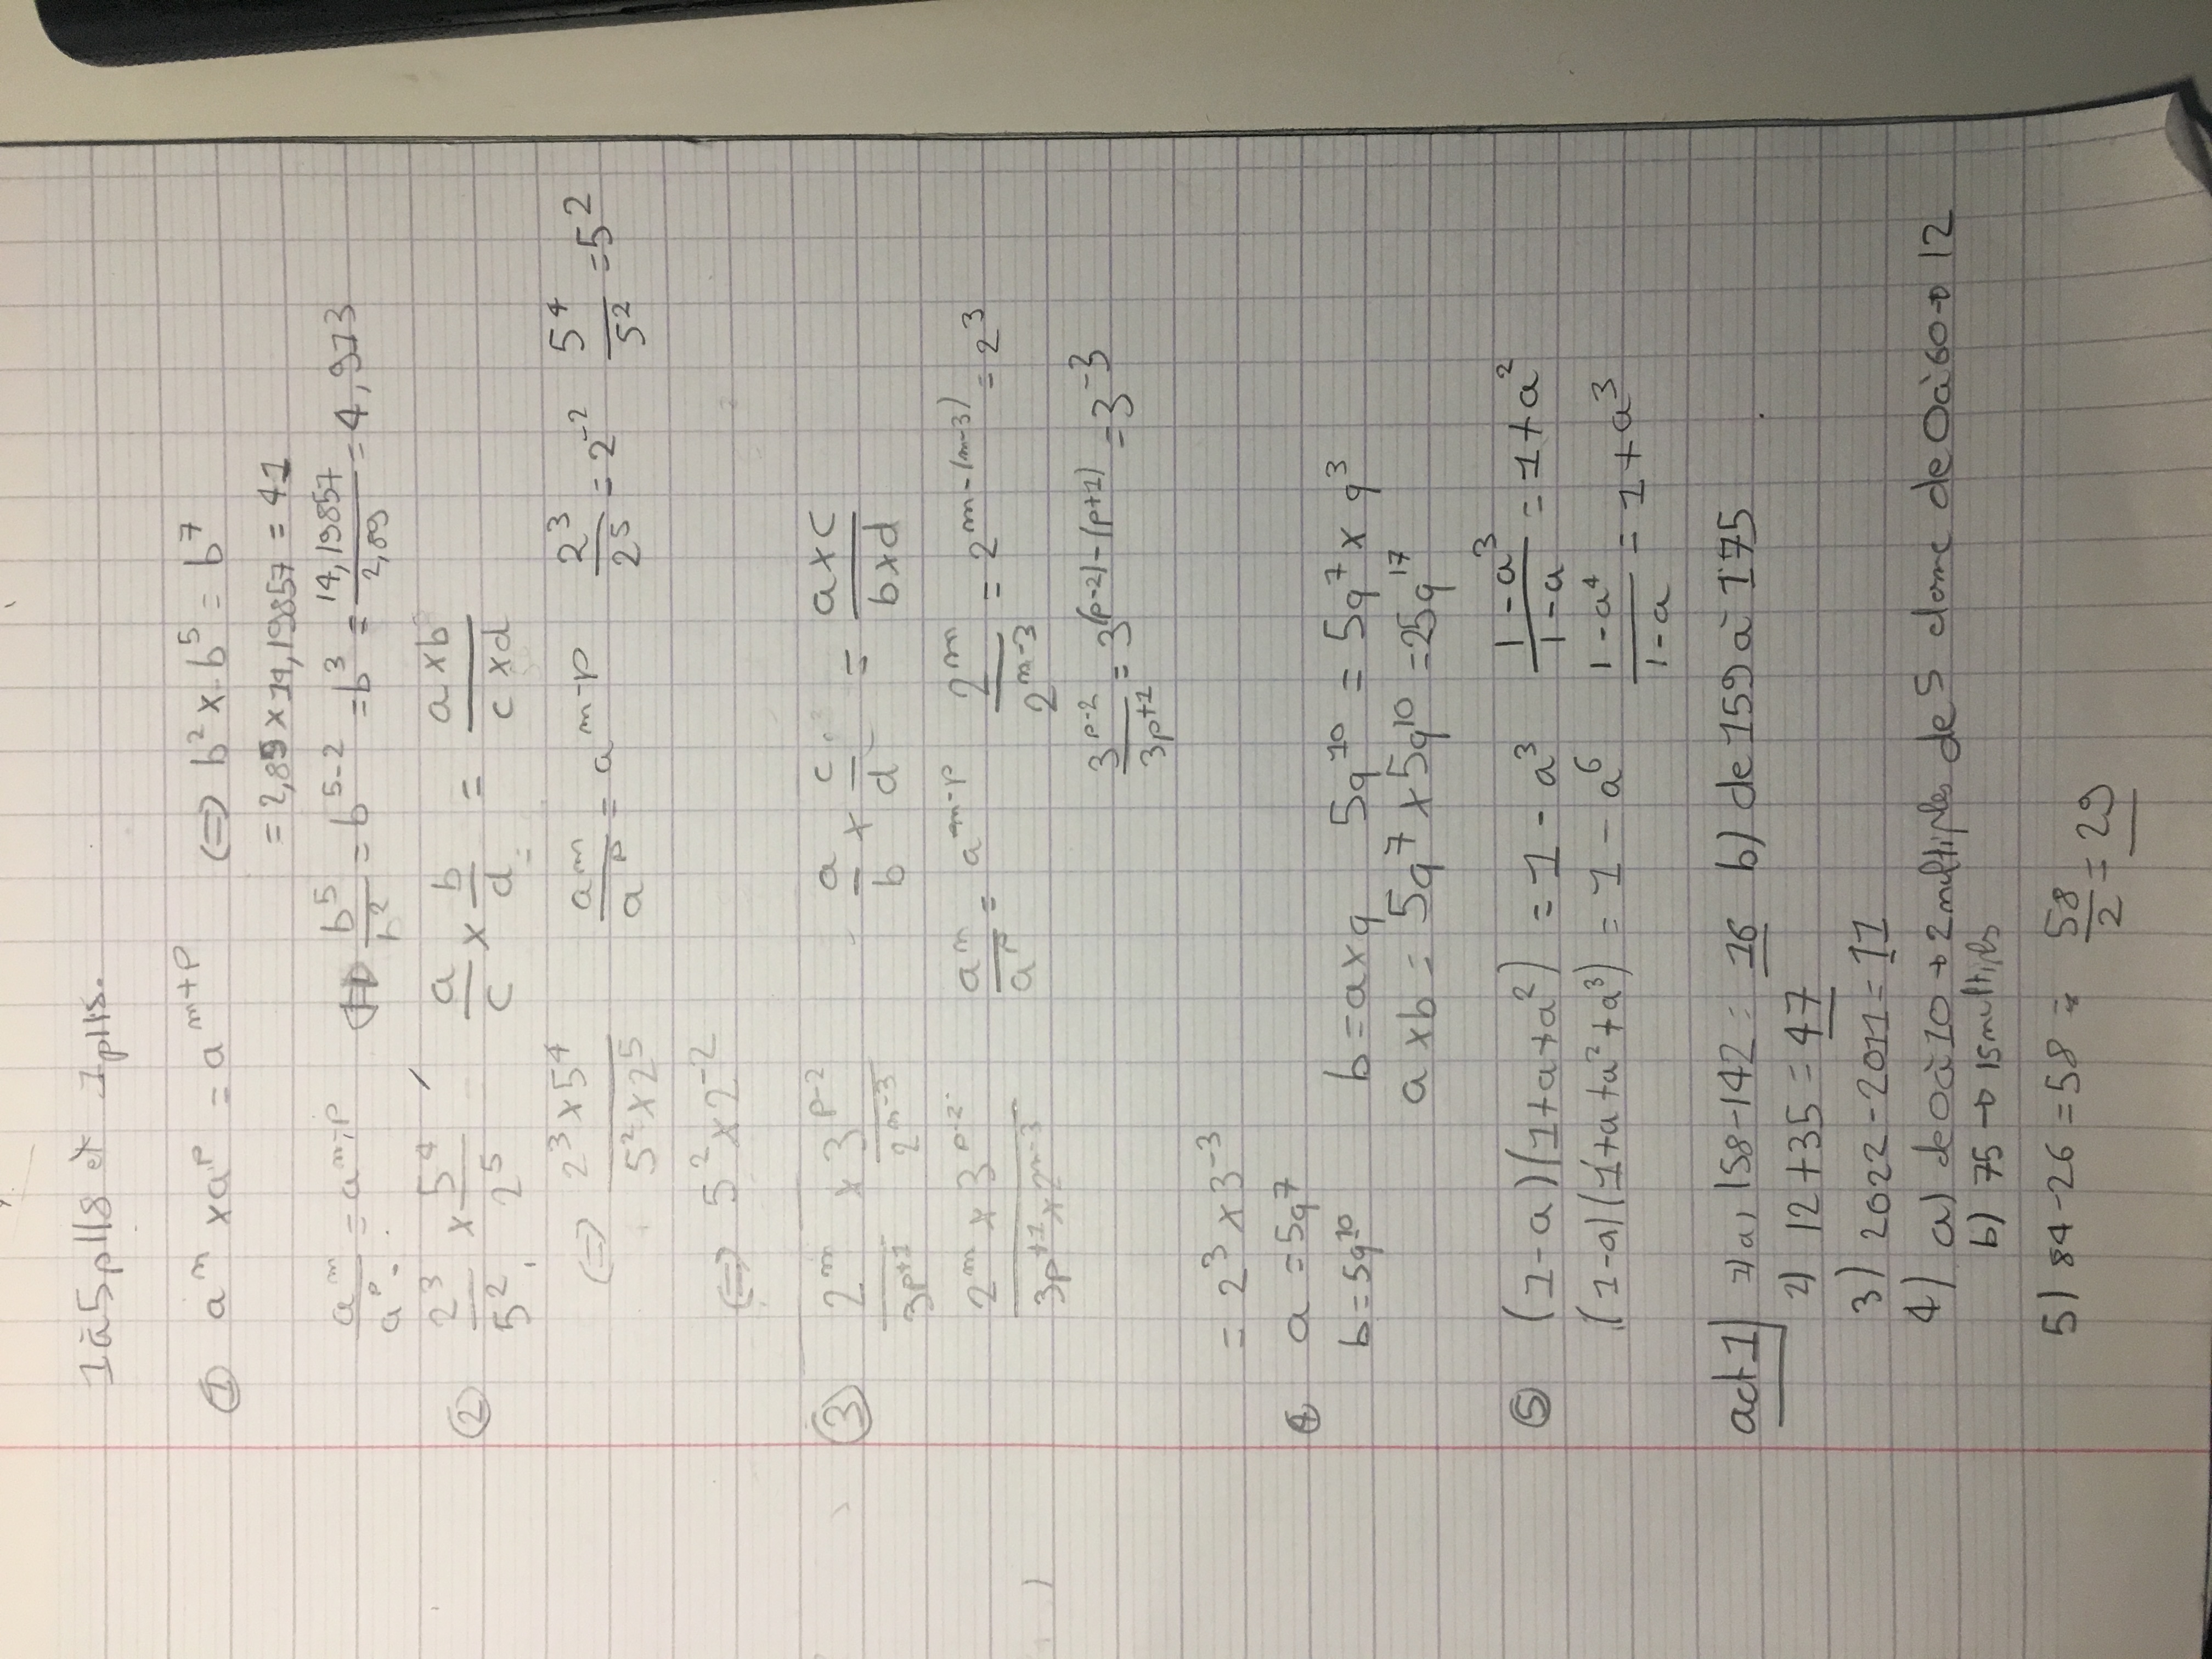 1 à 5 p118 et 1 p118.
① a^m × a^p = a^(m+p) ⇔ b² × b⁵ = b⁷
= 2,89 × 14,19857 = 41
a^m/a^p = a^(m-p) ⇔ b⁵/b² = b^(5-2) = b³ = 14,19857/2,89 = 4,913
② 2³/5² × 5⁴/2⁵ a/c × b/d = (a×b)/(c×d)
⇔ (2³×5⁴)/(5²×2⁵) a^m/a^p = a^(m-p) 2³/2⁵ = 2⁻² 5⁴/5² = 5²
⇔ 5² × 2⁻²
③ 2^m/3^(p+1) × 3^(p-2)/2^(m-3) a/b × c/d = (a×c)/(b×d)
(2^m × 3^(p-2))/(3^(p+1) × 2^(m-3)) a^m/a^p = a^(m-p) 2^m/2^(m-3) = 2^(m-(m-3)) = 2³
3^(p-2)/3^(p+1) = 3^((p-2)-(p+1)) = 3⁻³
= 2³ × 3⁻³
④ a = 5q⁷
b = 5q¹⁰ b = a×q 5q¹⁰ = 5q⁷ × q³
a×b = 5q⁷ × 5q¹⁰ = 25q¹⁷
⑤ (1-a)(1+a+a²) = 1-a³ (1-a³)/(1-a) = 1+a²
(1-a)(1+a+a²+a³) = 1-a⁶ (1-a⁴)/(1-a) = 1+a³
act 1 1) a) 158-142 = 16 b) de 159 à 175
2) 12+35 = 47
3) 2022-2011 = 11
4) a) de 0 à 10 → 2 multiples de 5 donc de 0 à 60 → 12
b) 75 → 15 multiples
5) 84-26 = 58 = 58/2 = 29